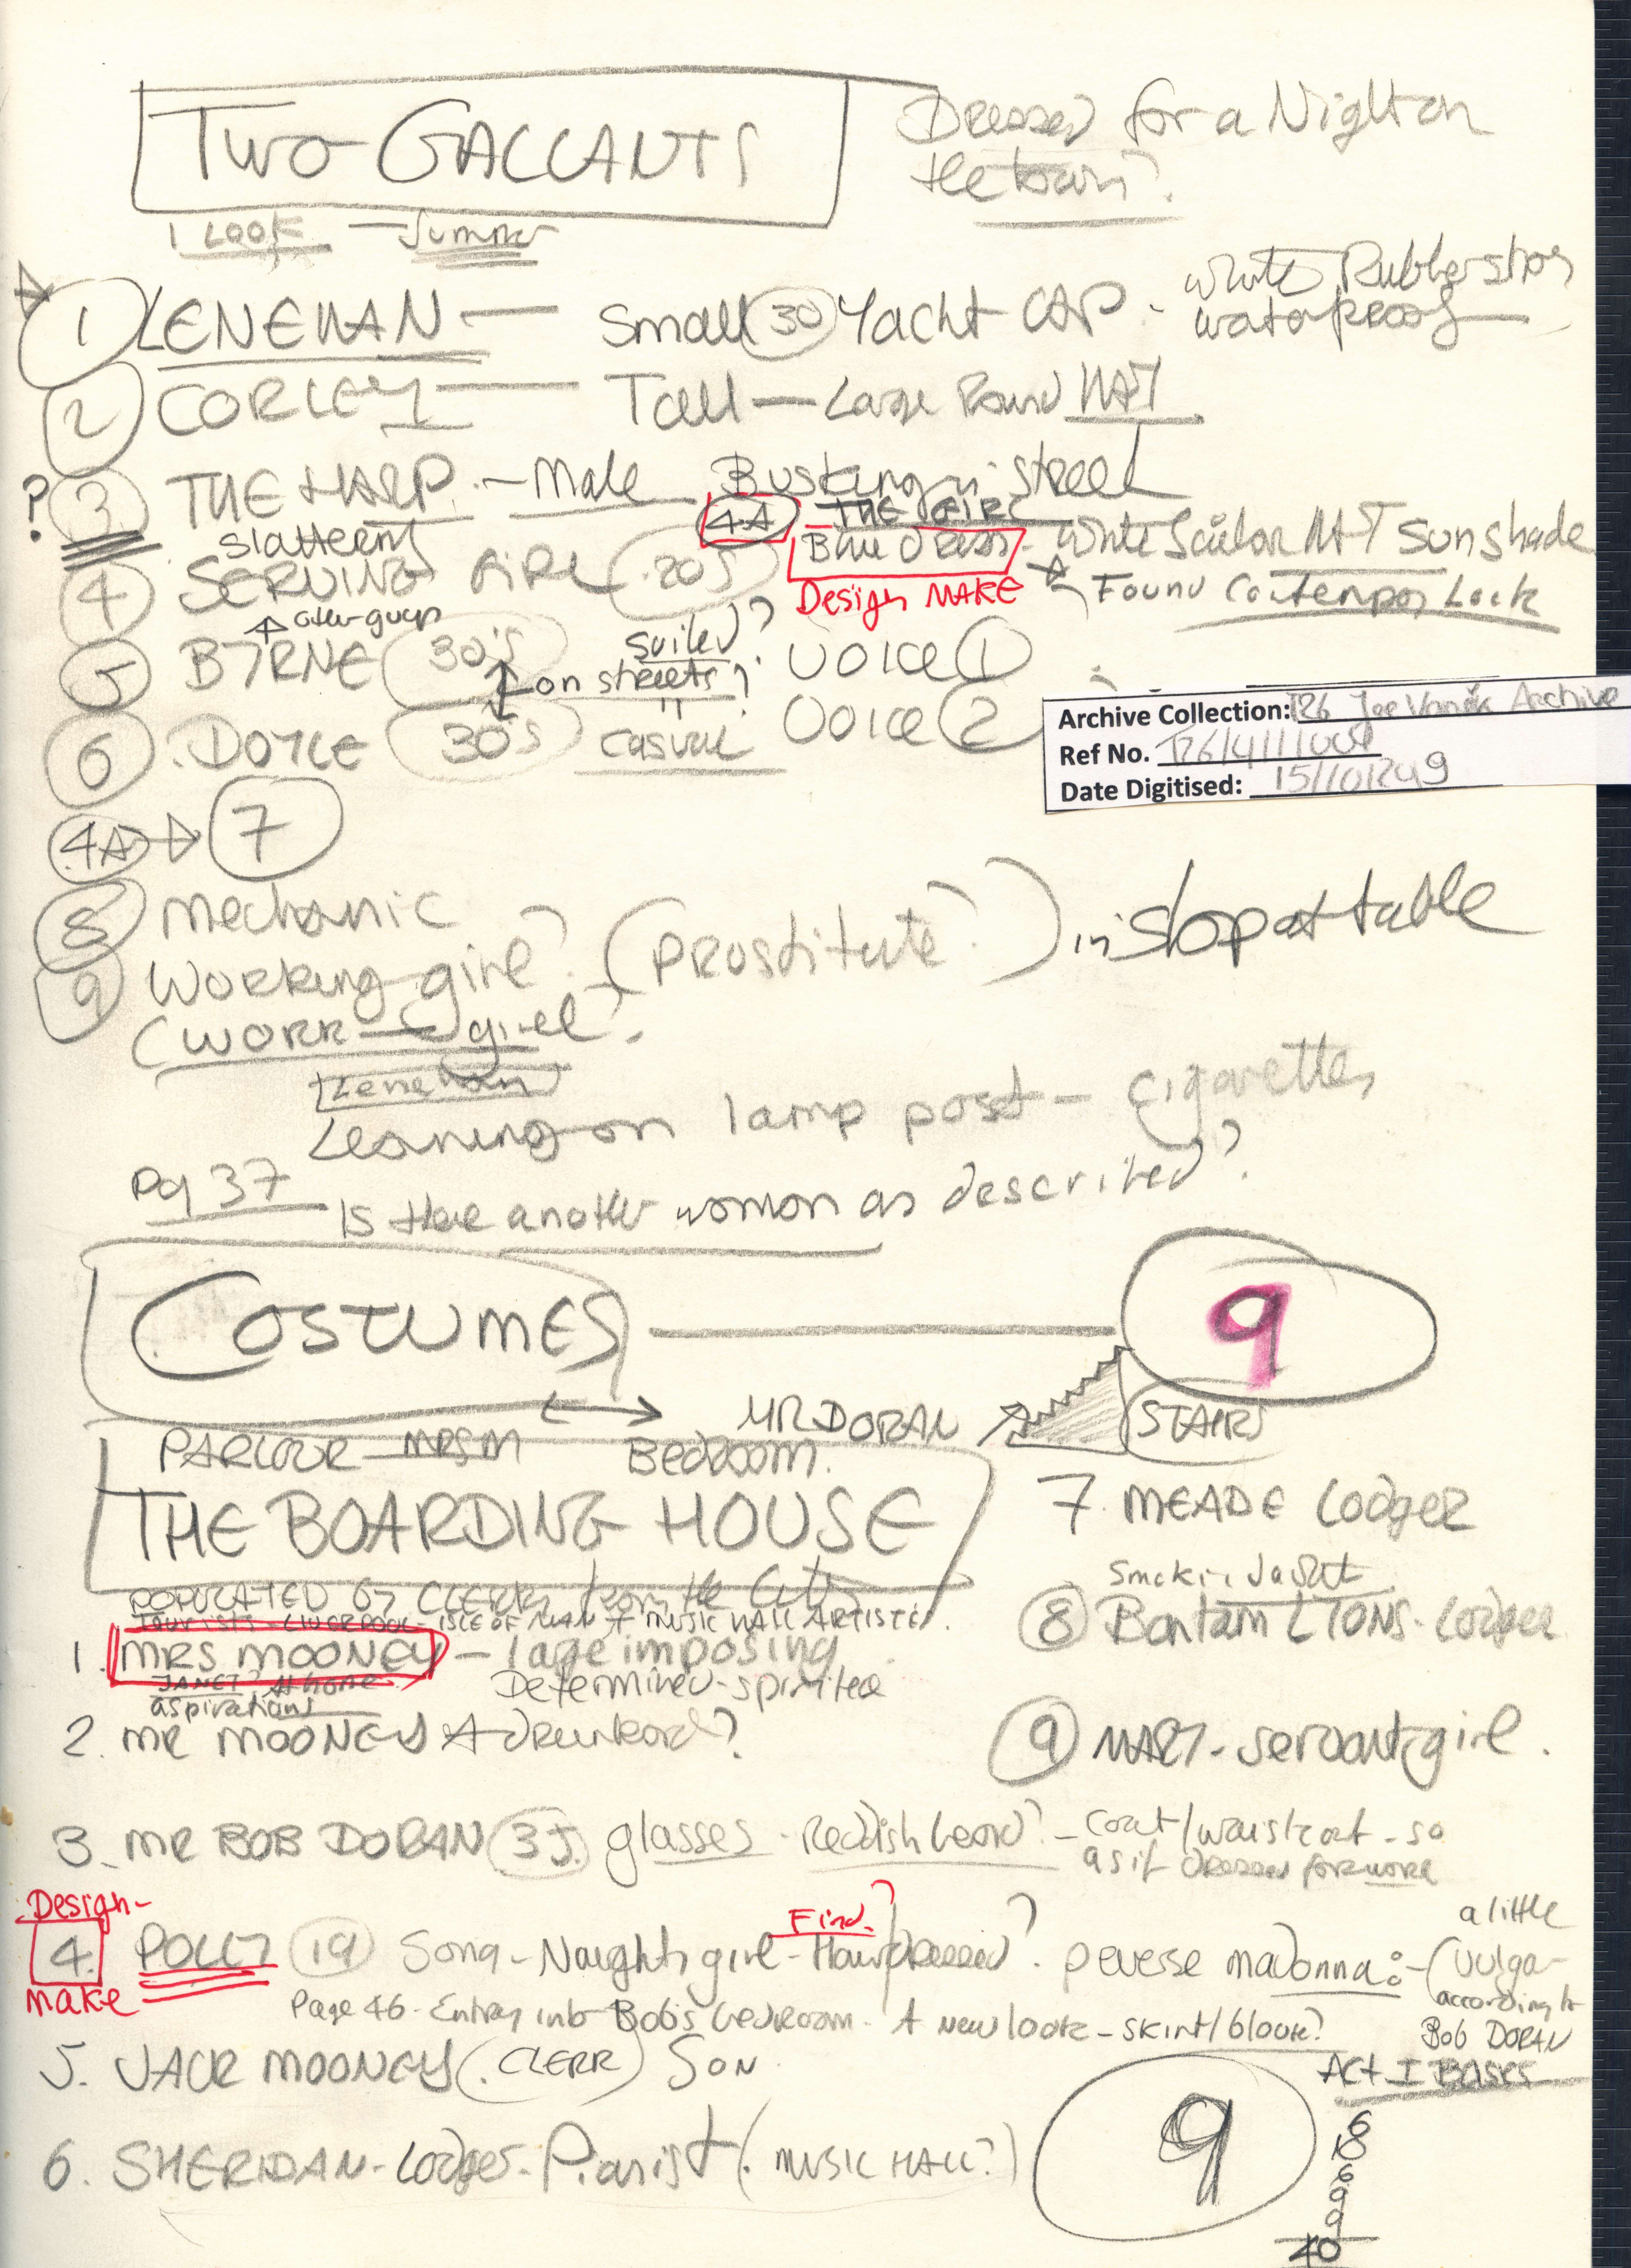 TWO GALLANTS
Dressed for a Night on
the town?
1 LOOK — Summer
1 LENEHAN — Small 30 Yacht CAP - white Rubber shoes
waterproof
2 CORLEY — Tall — Large Round HAT
? 3 THE HARP - Male Busking in street
4A THE GIRL
slatternly
4 SERVING GIRL 20's
Blue dress - White Sailor HAT Sunshade
Design MAKE
Found Contempory Look
5 BYRNE 30's
suited? VOICE 1
on streets?
6 DOYLE 30's casual VOICE 2
Archive Collection: T26 Joe Vaněk Archive
Ref No.
Date Digitised:
4A 7
8 Mechanic
9 Working girl? (Prostitute?) in shop at table
(WORK - girl?
Lenehan
Leaning on lamp post - cigarettes
Pg 37
Is there another woman as described?
COSTUMES — 9
PARLOUR - MRS M
Bedroom. MR DORAN
STAIRS
THE BOARDING HOUSE
POPULATED BY CLERKS from the City
TOURISTS - LIVERPOOL - ISLE OF MAN + MUSIC HALL ARTISTES.
1. MRS MOONEY - large imposing
JANET? at home
aspirations
Determined - spirited
2. MR MOONEY A drunkard?
3. MR BOB DORAN 35. glasses - Reddish beard? - coat/waistcoat - so
as if dressed for work
Design -
4. POLLY 19 Song - Naughty girl - Hair dressed? perverse madonna: - (a little
Find?
make
vulgar
according to
Bob DORAN
Page 46 - Entry into Bob's bedroom - A new look - skirt/blouse?
5. JACK MOONEY (CLERK) SON
6. SHERIDAN - Lodger - Pianist (MUSIC HALL?)
7. MEADE Lodger
Smoking Jacket
8 Bantam LYONS - Lodger
9 MARY - servant girl.
9
ACT I BASES
6
6
9
9
40